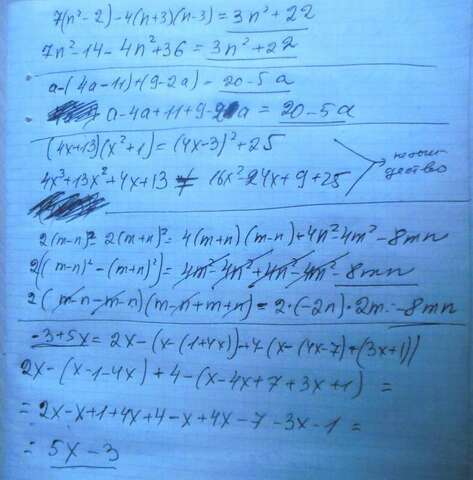 7(n²-2)-4(n+3)(n-3)=3n²+22
7n²-14-4n²+36=3n²+22
a-(4a-11)+(9-2a)=20-5a
a-4a+11+9-2a=20-5a
(4x+13)(x²+1)=(4x-3)²+25
4x³+13x²+4x+13≠16x²-24x+9+25
не тождество
2(m-n)²-2(m+n)²=4(m+n)(m-n)+4n²-4m²-8mn
2((m-n)²-(m+n)²)=4m²-4n²+4n²-4m²-8mn
2(m-n-m-n)(m-n+m+n)=2·(-2n)·2m=-8mn
-3+5x=2x-(x-(1+4x))+4-(x-(4x-7)+(3x+1))
2x-(x-1-4x)+4-(x-4x+7+3x+1)=
=2x-x+1+4x+4-x+4x-7-3x-1=
=5x-3